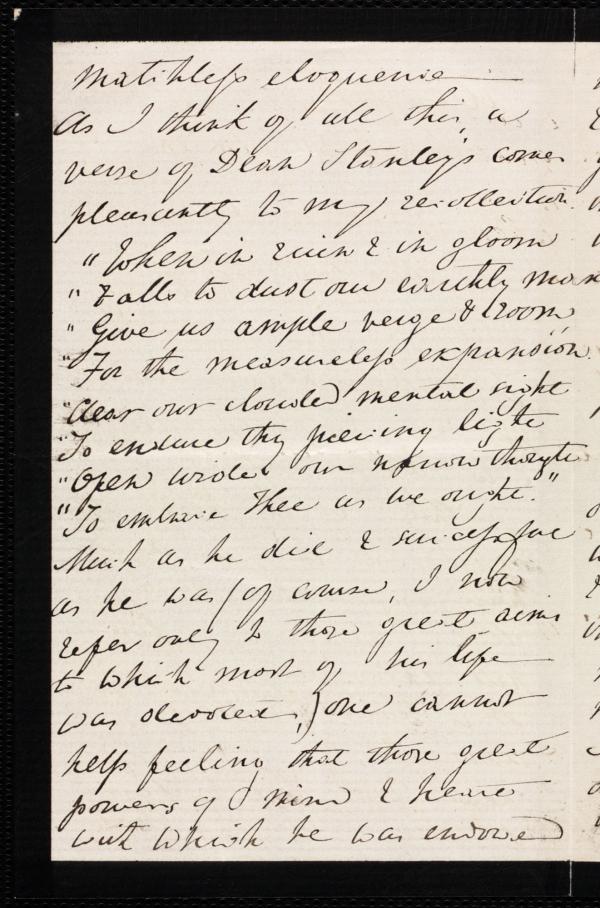 matchless eloquence —
As I think of all this, a
verse of Dean Stanley's comes
pleasantly to my recollection.
"When in ruin & in gloom
"Falls to dust our earthly
"Give us ample verge & room
"For the measureless expansion.
"Clear our clouded mental sight
"To endure thy piercing light
"Open wide our narrow thought
"To embrace Thee as we ought."
Much as he did & successful
as he was (of course, I now
refer only to those great aims
to which most of his life
was devoted,) one cannot
help feeling that those great
powers of mind & heart
with which he was endowed